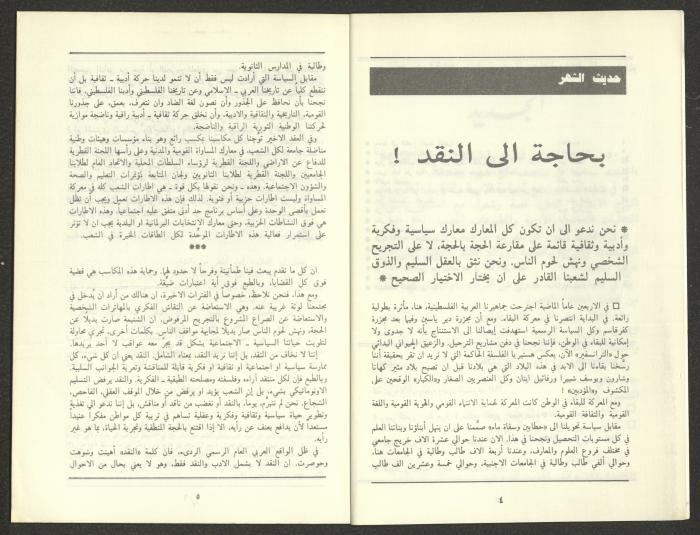 حديث الشهر
بحاجة الى النقد !
* نحن ندعو الى ان تكون كل المعارك معارك سياسية وفكرية
وأدبية وثقافية قائمة على مقارعة الحجة بالحجة، لا على التجريح
الشخصي ونهش لحوم الناس. ونحن نثق بالعقل السليم والذوق
السليم لشعبنا القادر على ان يختار الاختيار الصحيح *
□ في الاربعين عاماً الماضية اجترحت جماهيرنا العربية الفلسطينية، هنا، مأثرة بطولية
رائعة. في البداية انتصرنا في معركة البقاء. ومع أن مجزرة دير ياسين وفيها بعد مجزرة
كفرقاسم وكل السياسة الرسمية استهدفت إيصالنا الى الاستنتاج بأنه لا جدوى ولا
إمكانية للبقاء في الوطن، فإننا نجحنا في دفن مشاريع الترحيل. والزعيق الهيجي البدائي
حول «الترانسفير» الآن، يعكس هستيريا الفلسفة الحاكمة التي لا تريد ان تقر بحقيقة أننا
رسّخنا بقاءنا الى الابد في هذه البلاد التي هي بلادنا قبل ان تصبح بلاد مئير كهانا
وشارون ويوسف شبيرا ورفائيل ايتان وكل العنصريين الصغار و«الكبار» الوقحين على
المكشوف و«المؤدبين» !
ومع المعركة للبقاء في الوطن كانت المعركة لحماية الانتماء القومي والهوية القومية واللغة
القومية والثقافة القومية.
مقابل سياسة تحويلنا الى «حطابين وسقاة ماء» صمّمنا على ان ينهل أبناؤنا وبناتنا العلم
في كل مستويات التحصيل ونجحنا في هذا. الان عندنا حوالي عشرة الاف خريج جامعي
في مختلف فروع العلوم والمعارف، وعندنا أربعة الاف طالب وطالبة في الجامعات هنا،
وحوالي ألفي طالب وطالبة في الجامعات الاجنبية. وحوالي خمسة وعشرين الف طالب
٤
وطالبة في المدارس الثانوية.
مقابل السياسة التي أرادت ليس فقط أن لا تنمو لدينا حركة أدبية ـ ثقافية بل أن
ننقطع كلياً عن تاريخنا العربي ـ الإسلامي وعن تاريخنا الفلسطيني وأدبنا الفلسطيني، فاننا
نجحنا بأن نحافظ على الجذور وأن نصون لغة الضاد وان نتعرف، بعمق، على جذورنا
القومية، التاريخية والثقافية والادبية، وأن نخلق حركة ثقافية ـ أدبية راقية وناضجة موازية
لحركتنا الوطنية الثورية الراقية والناضجة.
وفي العقد الاخير توّجنا كل مكاسبنا بمكسب رائع وهو بناء مؤسسات وهيئات وطنية
مناضلة جامعة لكل الشعب، في معارك المساواة القومية والمدنية وعلى رأسها اللجنة القطرية
للدفاع عن الاراضي واللجنة القطرية لرؤساء السلطات المحلية والاتحاد العام لطلابنا
الجامعيين واللجنة القطرية لطلابنا الثانويين ولجان المتابعة لمؤتمرات التعليم والصحة
والشؤون الاجتماعية. وهذه ـ ونحن نقولها بكل قوة ـ هي اطارات الشعب كله في معركة
المساواة وليست اطارات حزبية أو فئوية. لذلك فإن هذه الاطارات تعمل ويجب أن تظل
تعمل بأقصى الوحدة وعلى أساس برنامج حد أدنى متفق عليه اجتماعيا. وهذه الاطارات
هي فوق النشاطات الحزبية. وحتى معارك الانتخابات البرلمانية او البلدية يجب ان لا تؤثر
على استمرار فعالية هذه الاطارات الموحِّدة لكل الطاقات الخيّرة في الشعب.
***
ان كل ما تقدم يبعث فينا طمأنينة وفرحاً لا حدود لهما. وحماية هذه المكاسب هي قضية
فوق كل القضايا، وبالطبع فوق أية اعتبارات ضيقة.
ومع هذا، فنحن نلاحظ، خصوصاً في الفترات الاخيرة، أن هنالك من أراد أن يُدخل في
مجتمعنا لوثة غريبة عنه، وهي الاستعاضة عن النقاش الفكري بالمهاترات الشخصية
والاستعاضة عن الصراع المشروع بالتجريح المرفوض. ان الشتيمة صارت بديلاً عن
الحجة، ونهش لحوم الناس صار بديلاً لمجابهة مواقف الناس. بكلمات أخرى، تجري محاولة
لتلويث حياتنا السياسية ـ الاجتماعية بشكل قد يجرّ معه عواقب لا أحد يريدها.
إننا لا نخاف من النقد، بل إننا نريد النقد، بمعناه الشامل. النقد يعني ان كل شيء، كل
ممارسة سياسية او اجتماعية او ثقافية او فكرية قابلة للمناقشة وتعرية الجوانب السلبية.
وبالطبع فإن لكل منتقد أراءه وفلسفته ومصلحته الطبقية ـ الفكرية. والنقد يرفض التسليم
الاوتوماتيكي بشيء، بل إن الشعب يؤيد او يرفض من خلال الموقف العقلي، الفاحص،
الشجاع. ونحن لم نتبرّم، يوماً، بالنقد او نغضب من ناقد أو مناقش، بل إننا ندعو الى تغذية
وتطوير حياة سياسية وثقافية وفكرية وعقلية تساهم في تربية كل مواطن مفكراً عنيداً
مستعداً لأن يدافع بعنف عن رأيه، الا إذا اقتنع بالحجة المنطقية وتجربة الحياة، بما هو غير
رأيه.
في ظل الواقع العربي العام الرسمي الرديء، فان كلمة «النقد» أهينت وشوهت
وحوصرت. ان النقد لا يشمل الادب والنقد فقط، وهو لا يعني بحال من الاحوال
٥